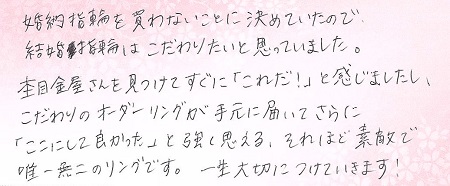 婚約指輪を買わないことに決めていたので
結婚指輪はこだわりたいと思っていました。
杢目金屋さんを見つけてすぐに「これだ!」と感じましたし、
こだわりのオーダーリングが手元に届いてさらに
「ここにして良かった」と強く思える、それほど素敵で
唯一無二のリングです。一生大切につけていきます!